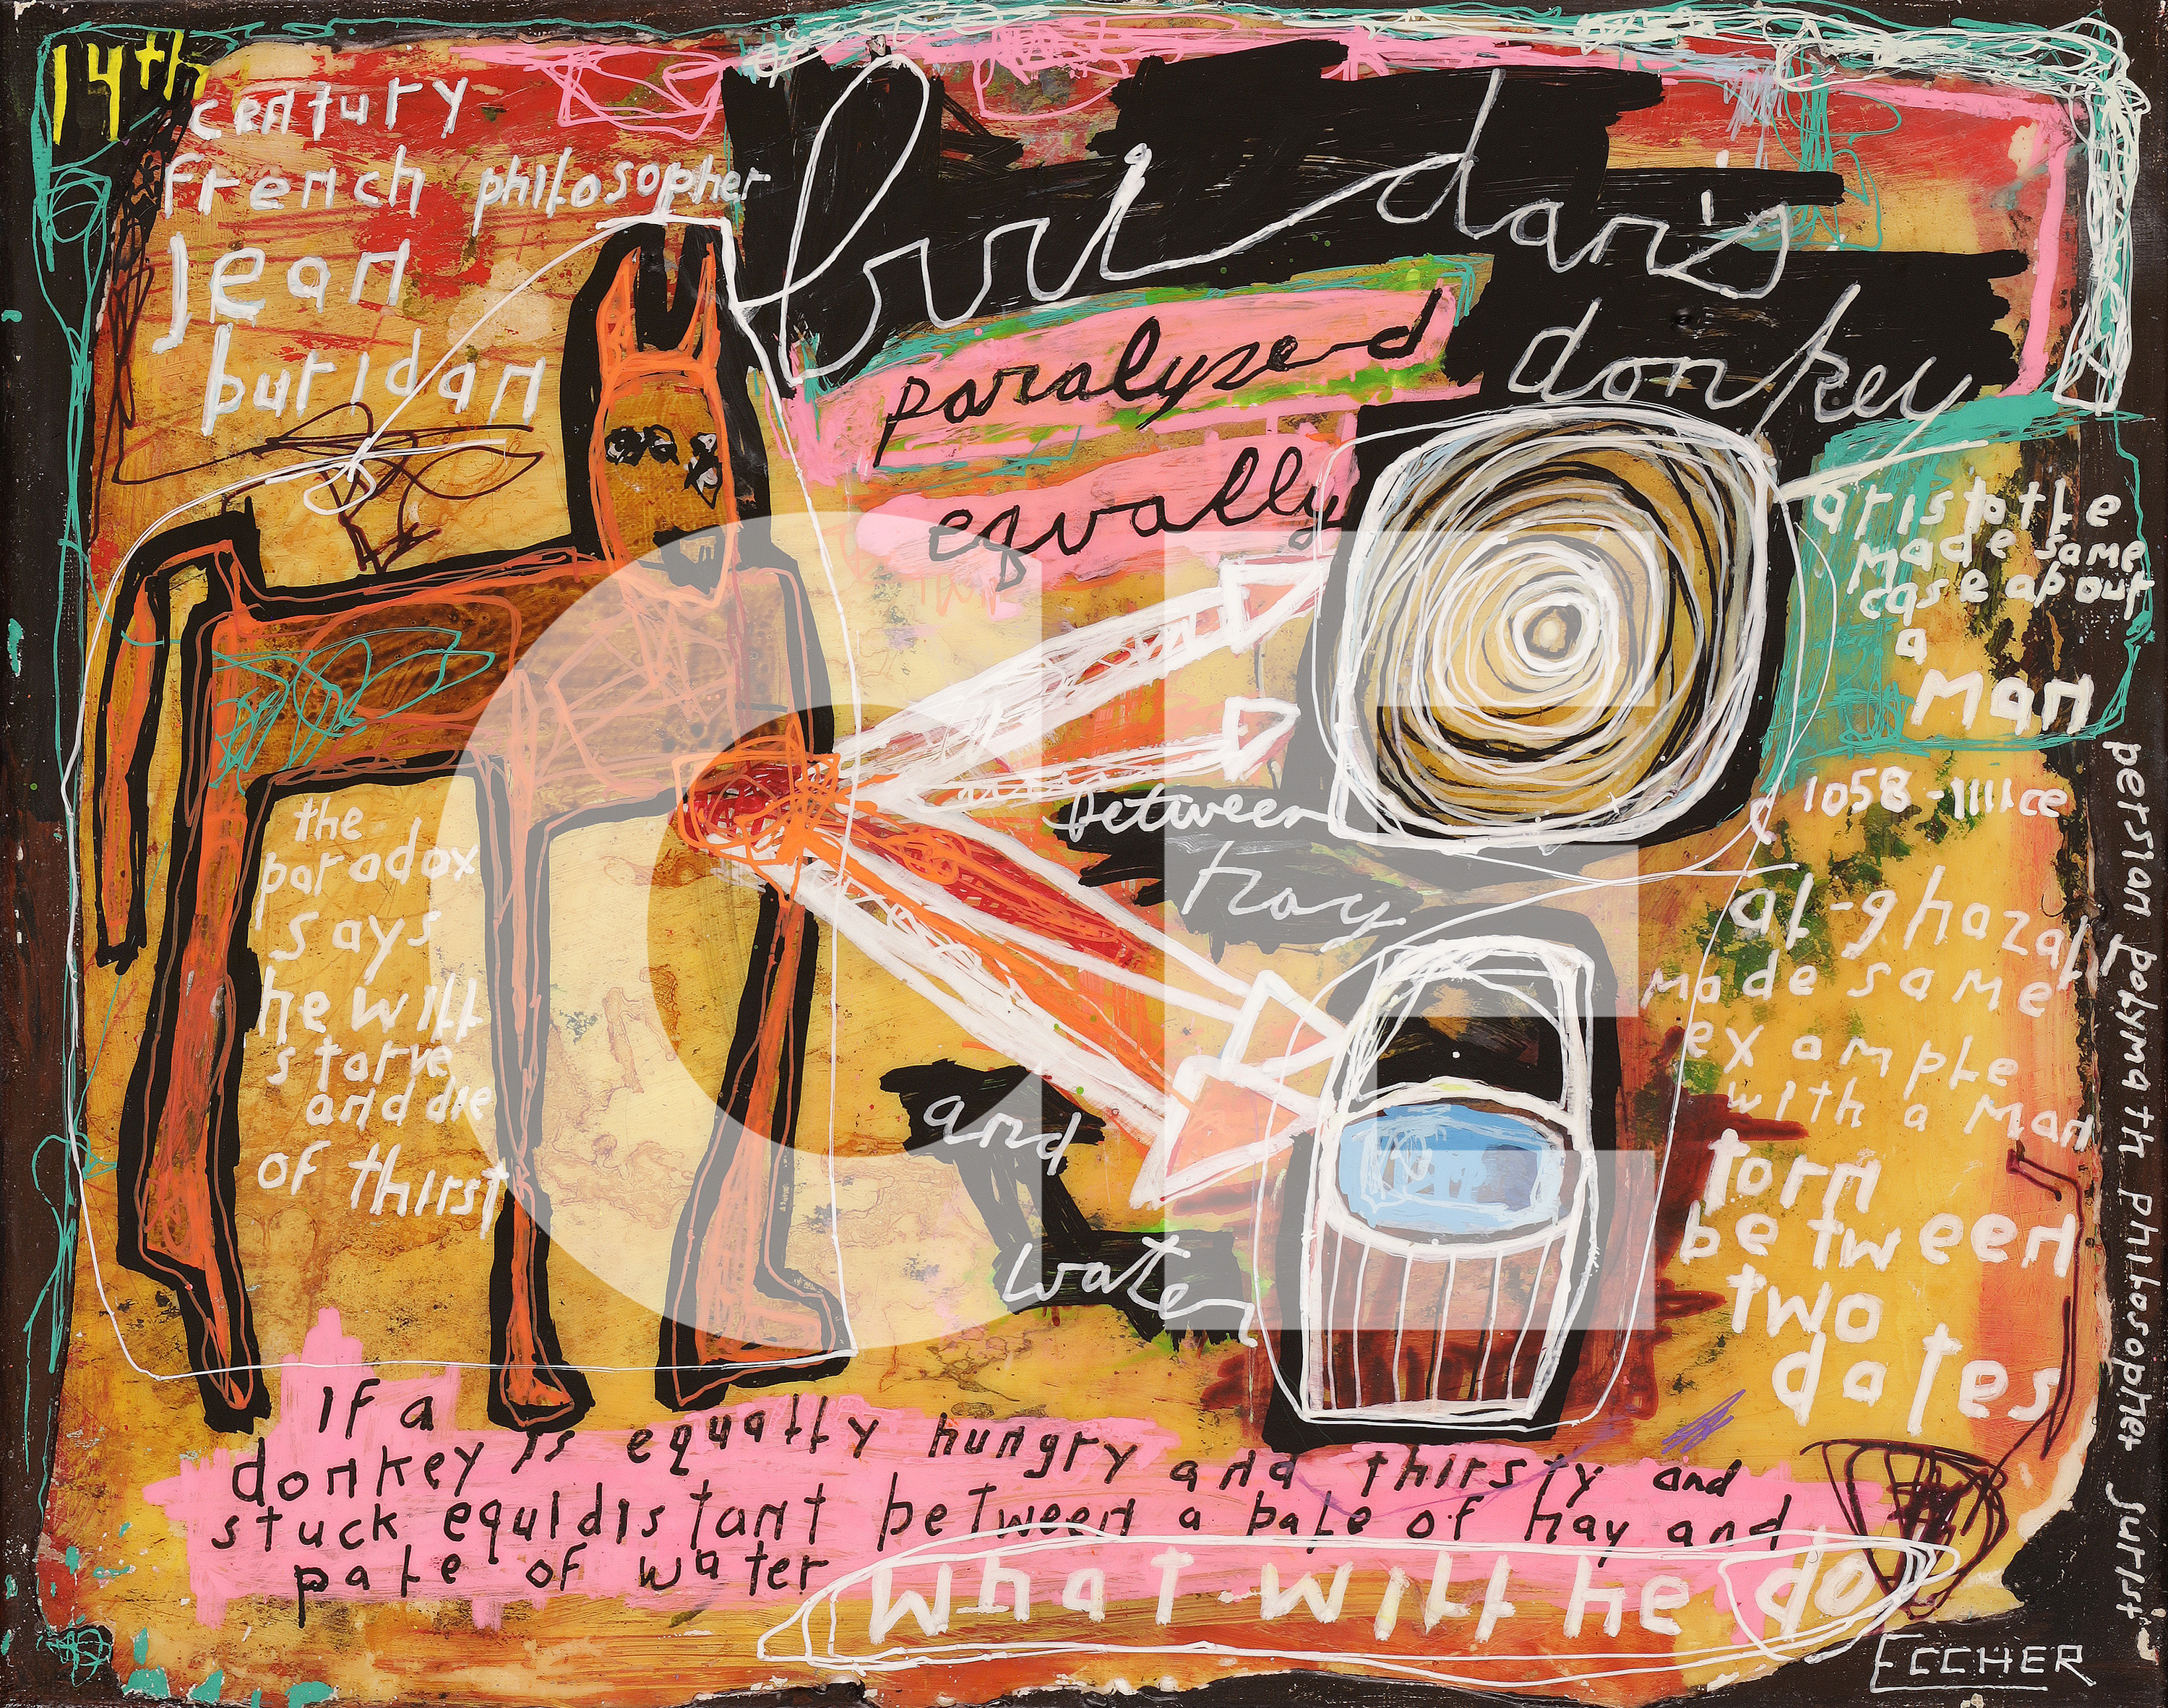 14th
century
french philosopher
jean
buridan
buridan's
donkey
paralyzed
equally
between
hay
and
water
aristotle
made same
case about
a
man
1058-1111ce
al-ghazali
made same
example
with a man
torn
between
two
dates
persian polymath philosopher jurist
the
paradox
says
he will
starve
and die
of thirst
If a
donkey is equally hungry and thirsty and
stuck equidistant between a bale of hay and
pale of water
what will he do
ECCHER
CE